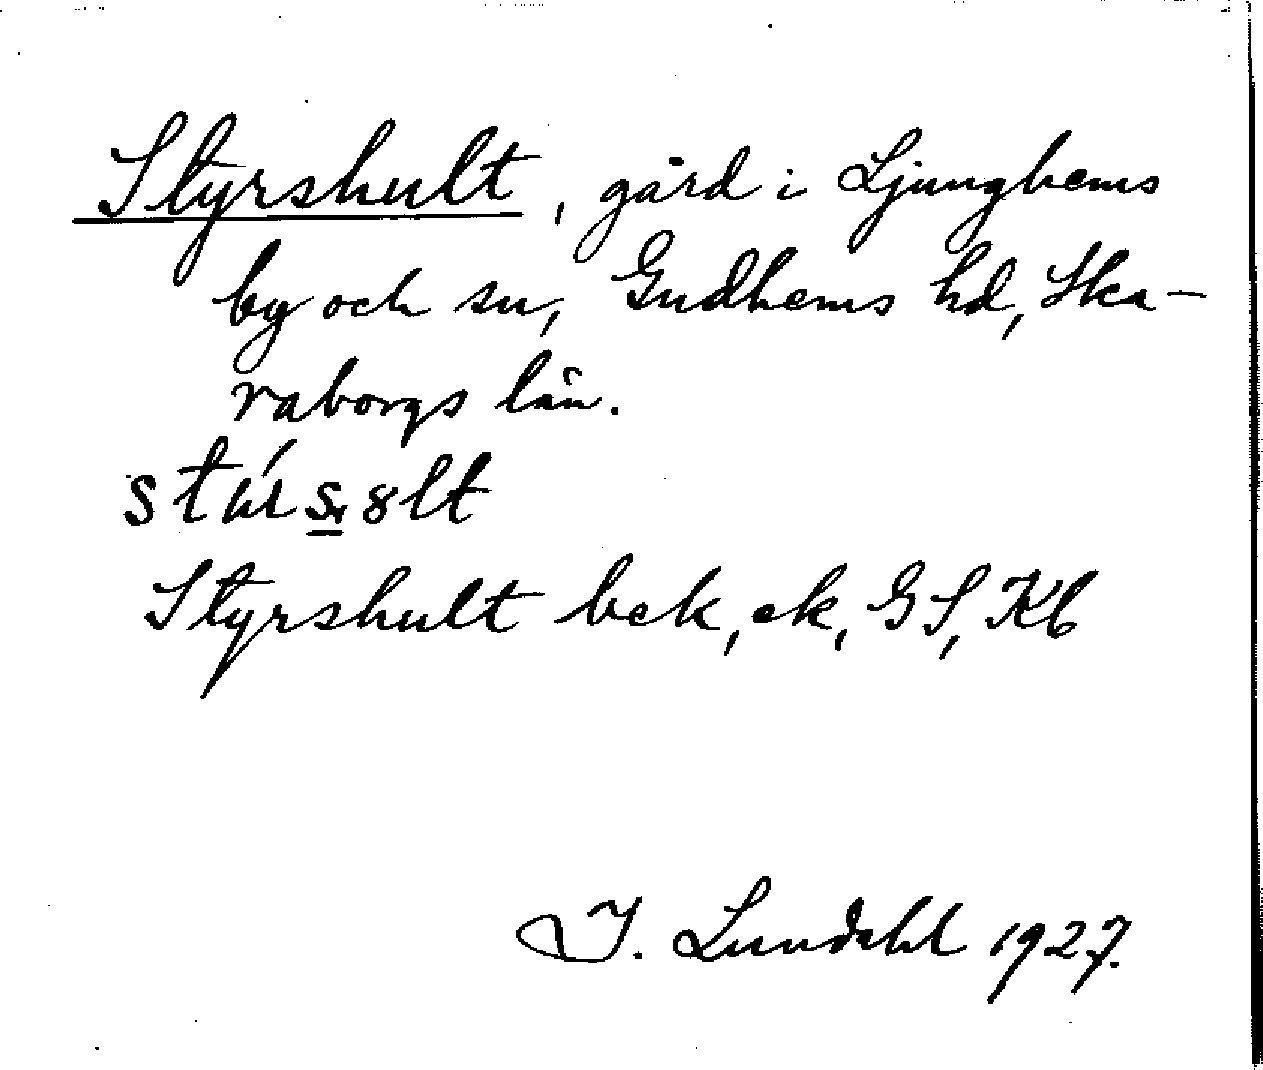 Styrshult, gård i Ljunghems
by och sn, Gudhems hd, Ska-
raborgs län.
Styrshult bek, ek, GS, Kb
I. Lundahl 1927.